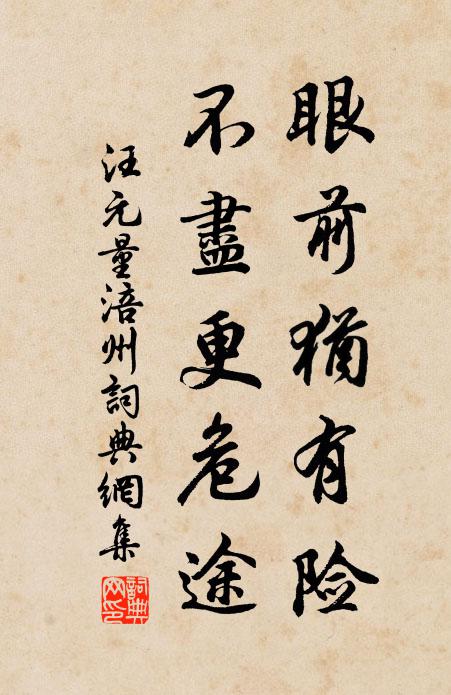 眼前猶有险
不盡更危途
汪元量涪州詞典網集
詞典
网印